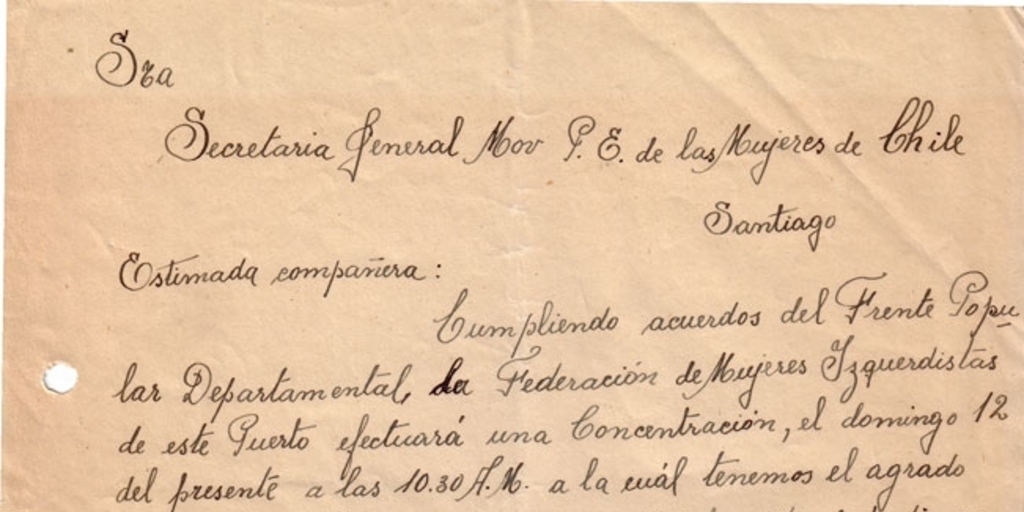 Sra
Secretaria General Mov P. E. de las Mujeres de Chile
Santiago
Estimada compañera:
Cumpliendo acuerdos del Frente Popu-
lar Departamental, la Federación de Mujeres Izquerdistas
de este Puerto efectuará una Concentración, el domingo 12
del presente a las 10.30 A.M. a la cuál tenemos el agrado